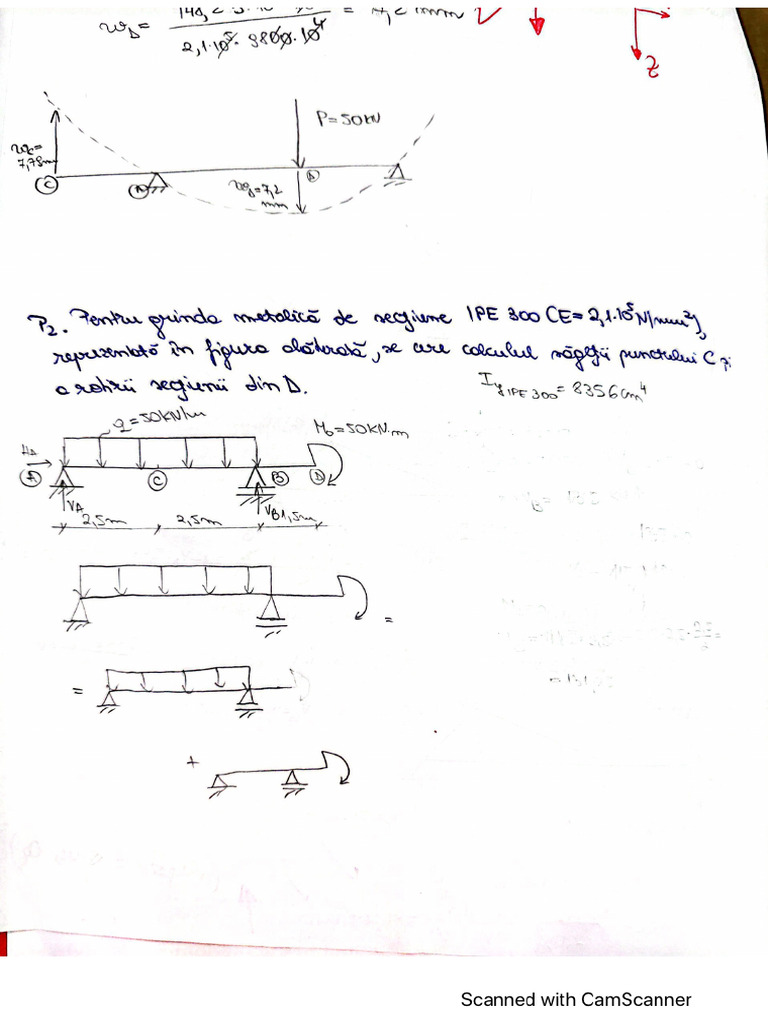 w_D = 148,2 = 7,2 mm
2,1·10⁵·9800·10⁴
z
P=50kN
w_C=
7,78mm
C
A
D
w_D=7,2
mm
P2. Pentru grinda metalică de secțiune IPE 300 (E=2,1·10⁵ N/mm²),
reprezentată în figura alăturată, se cere calculul săgeții punctului C și
a rotirii secțiunii din D.
I_y IPE 300 = 8356 cm⁴
q=50kN/m
M₀=50KN·m
H_A
A
C
B
D
V_A
V_B
2,5m
2,5m
1,5m
=
=
+
Scanned with CamScanner